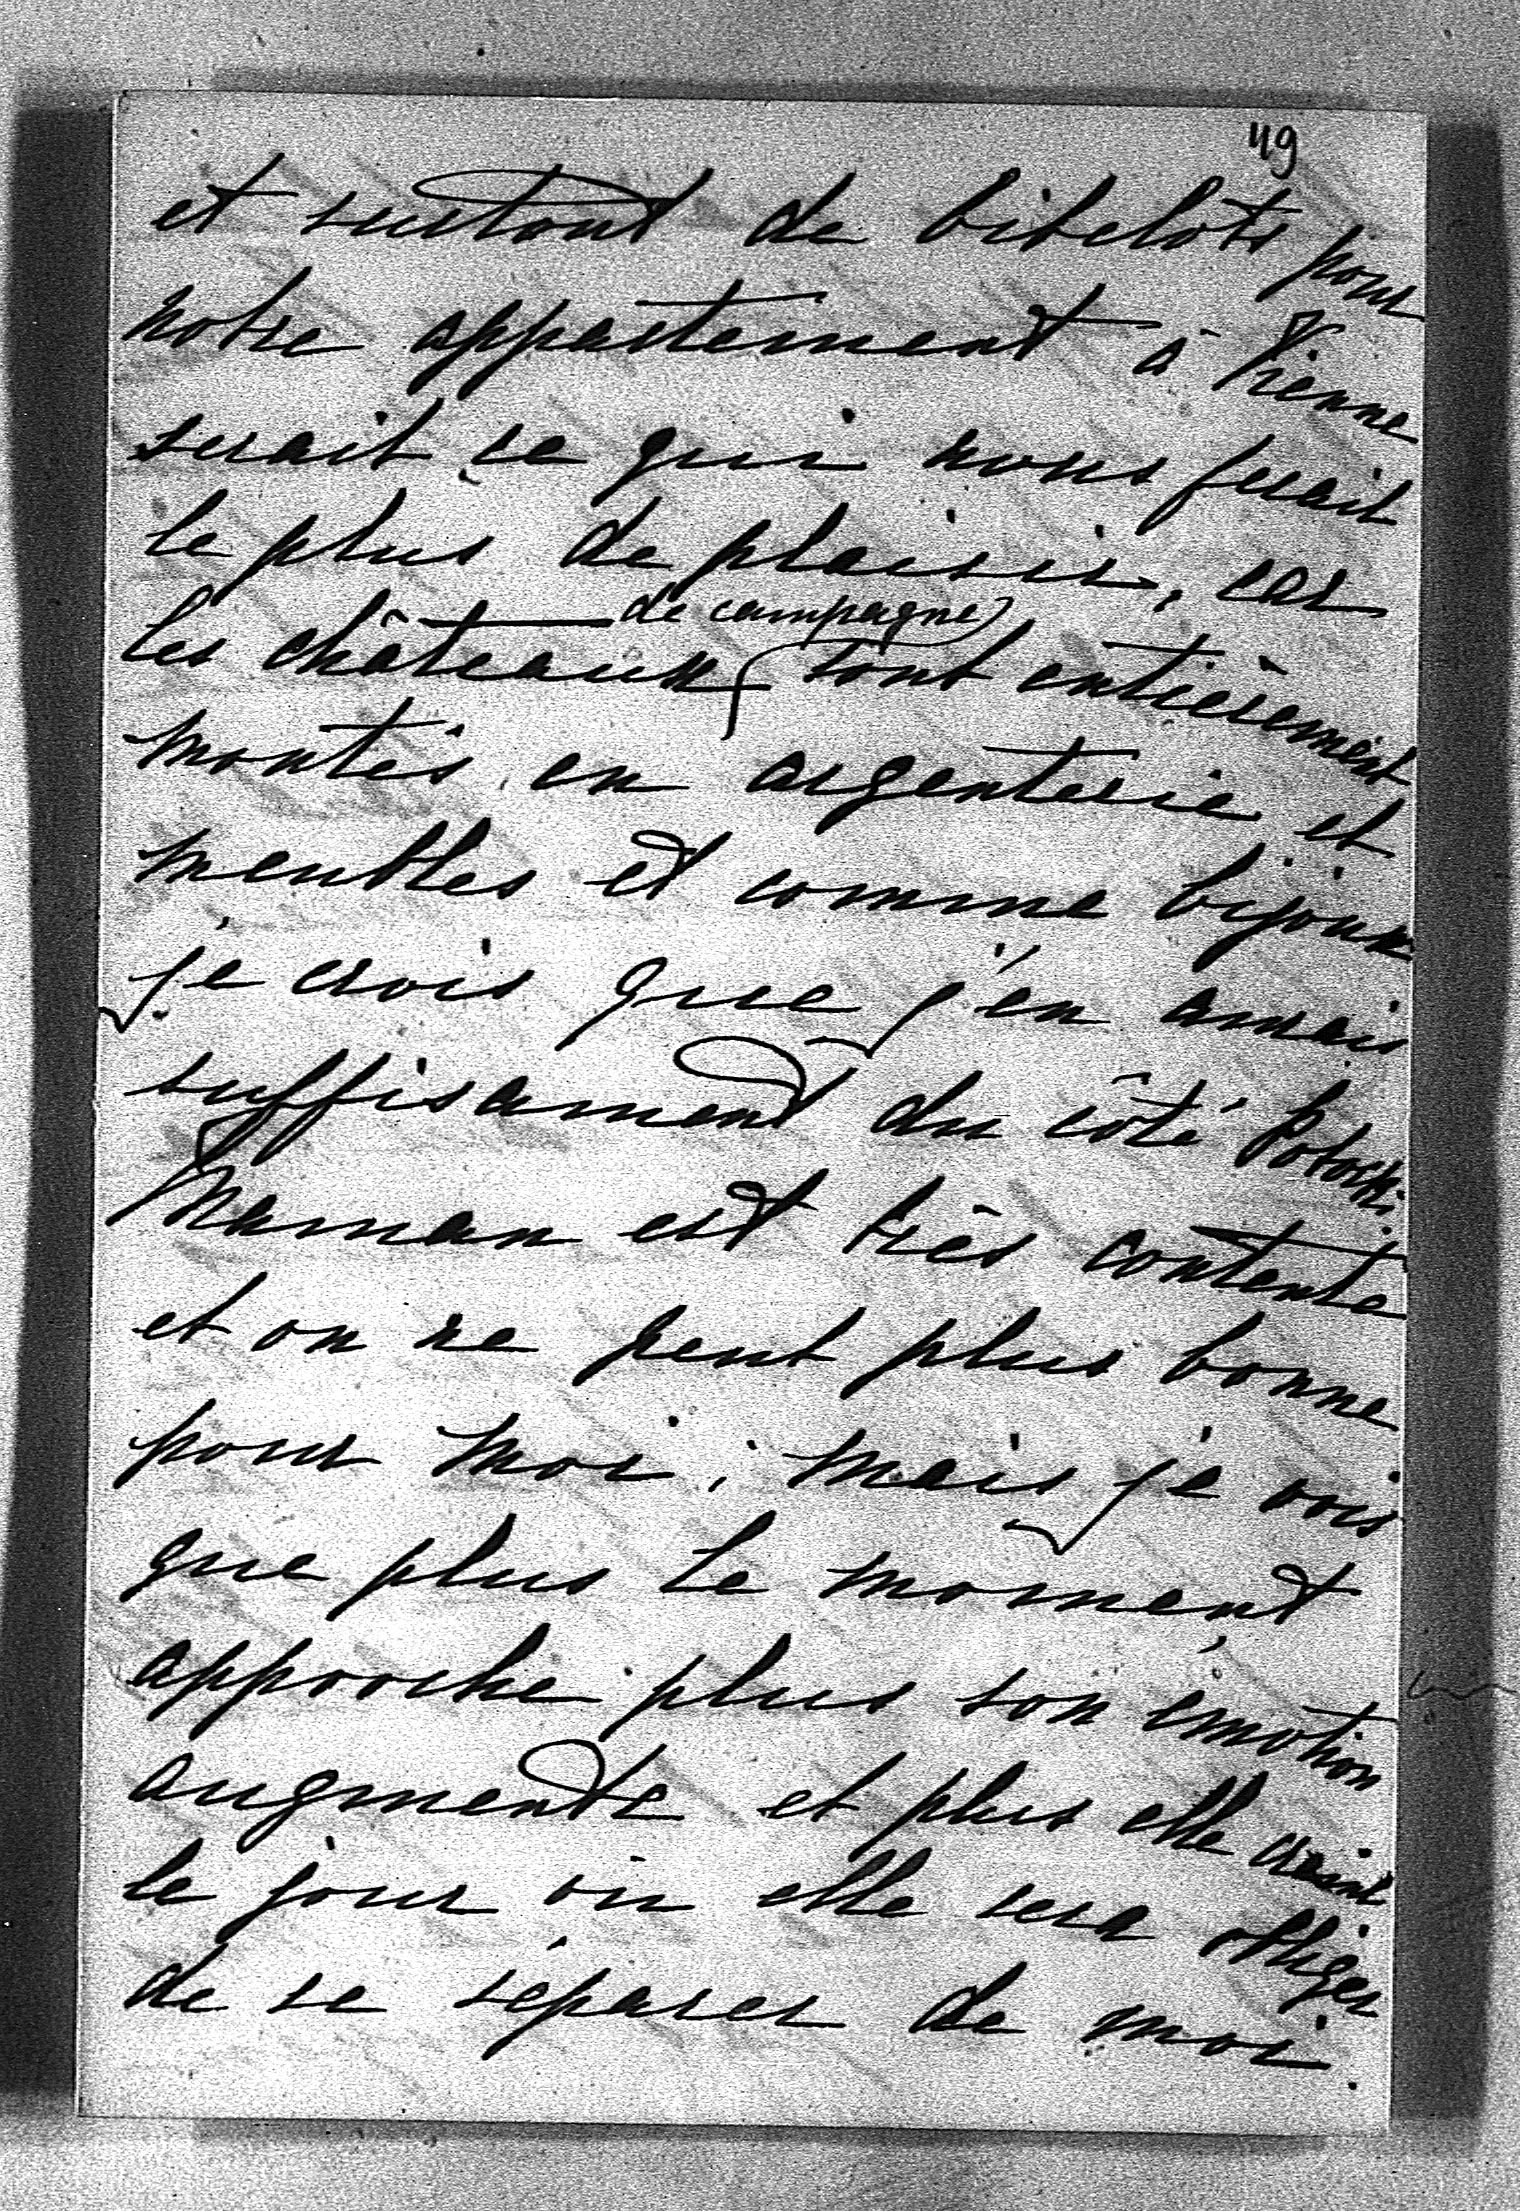 49
et surtout de bibelots pour
notre appartement à Vienne
serait ce qui nous ferait
le plus de plaisir, car
les châteaux de campagne sont entièrement
montés en argenterie et
meubles et comme bijoux
je crois que j'en aurais
suffisament du côté Potocki.
Maman est très contente
et on ne peut plus bonne
pour moi, mais je vois
que plus le moment
approche plus son émotion
augmente et plus elle craint
le jour où elle sera obliger
de se séparer de moi.